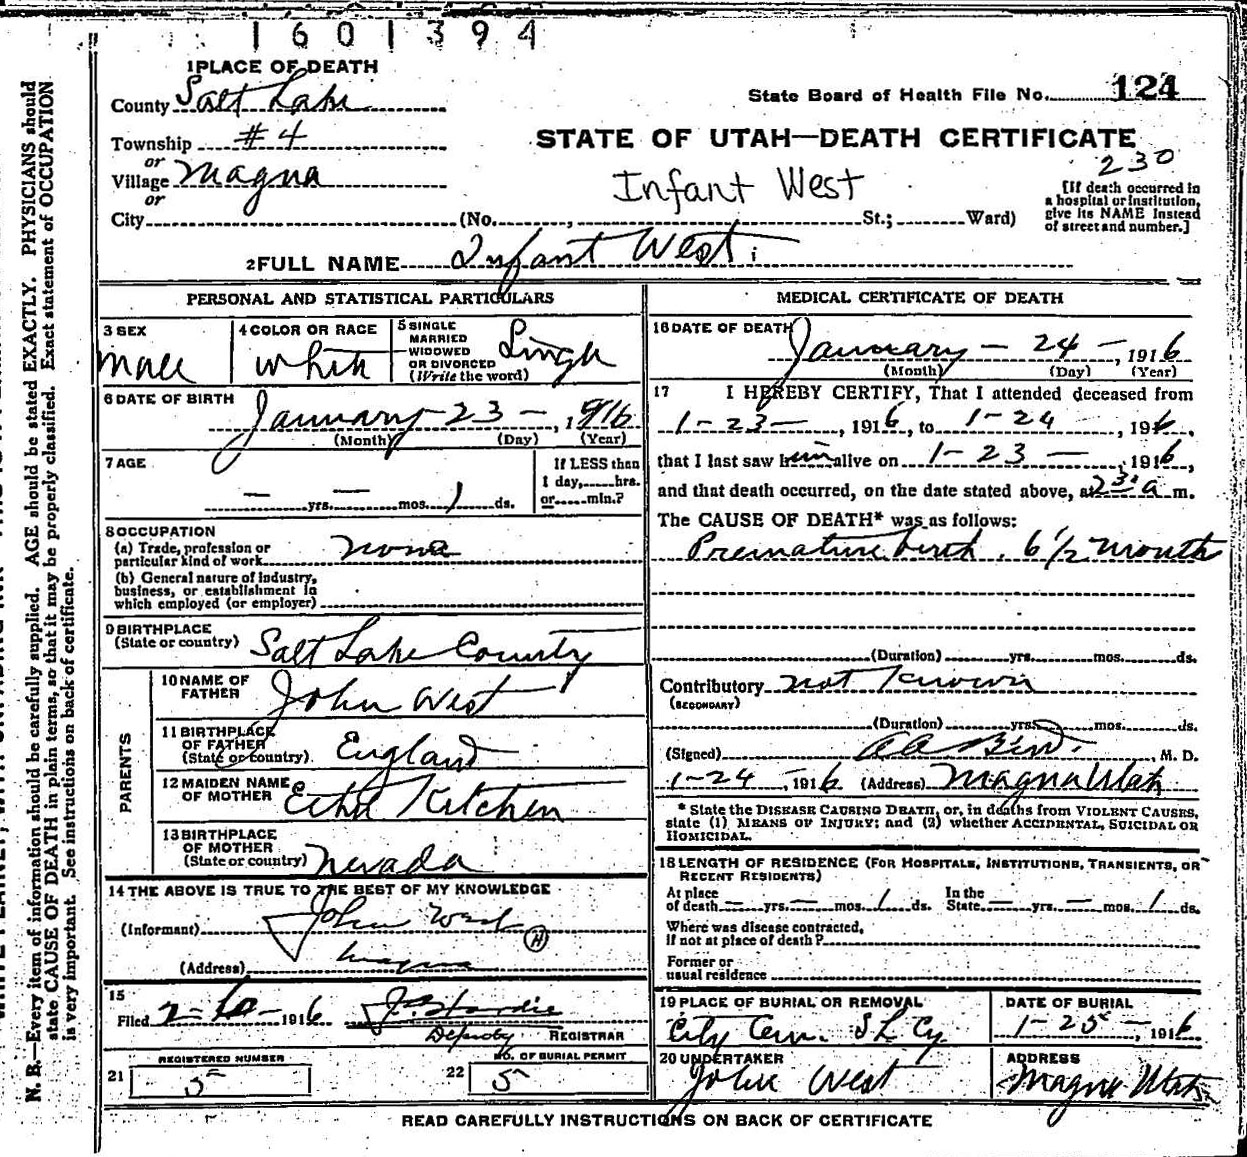 1601394
1 PLACE OF DEATH
County Salt Lake
State Board of Health File No. 124
Township #4
or
STATE OF UTAH—DEATH CERTIFICATE
Village Magna
or
Infant West
230
[If death occurred in a hospital or institution, give its NAME instead of street and number.]
City (No. , St.; Ward)
2 FULL NAME Infant West
PERSONAL AND STATISTICAL PARTICULARS
3 SEX Male
4 COLOR OR RACE White
5 SINGLE MARRIED WIDOWED OR DIVORCED (Write the word) Single
6 DATE OF BIRTH January 23 - , 1916
(Month) (Day) (Year)
7 AGE
— yrs. — mos. 1 ds.
If LESS than 1 day, hrs. or min.?
8 OCCUPATION
(a) Trade, profession or particular kind of work none
(b) General nature of industry, business, or establishment in which employed (or employer)
9 BIRTHPLACE
(State or country) Salt Lake County
PARENTS
10 NAME OF FATHER John West
11 BIRTHPLACE OF FATHER (State or country) England
12 MAIDEN NAME OF MOTHER Kitchen
13 BIRTHPLACE OF MOTHER (State or country) Nevada
14 THE ABOVE IS TRUE TO THE BEST OF MY KNOWLEDGE
(Informant) John West
H
(Address) Magna
15
Filed 1916
Deputy REGISTRAR
REGISTERED NUMBER
21 5
NO. OF BURIAL PERMIT
22 5
MEDICAL CERTIFICATE OF DEATH
16 DATE OF DEATH January - 24 - , 1916
(Month) (Day) (Year)
17 I HEREBY CERTIFY, That I attended deceased from
1-23- , 1916, to 1-24 , 1916,
that I last saw him alive on 1-23 - , 1916,
and that death occurred, on the date stated above, at a m.
The CAUSE OF DEATH* was as follows:
Premature birth. 6 1/2 months
(Duration) yrs. mos. ds.
Contributory not known
(SECONDARY)
(Duration) yrs. mos. ds.
(Signed) M. D.
1-24 , 1916 (Address) Magna Utah
* State the DISEASE CAUSING DEATH, or, in deaths from VIOLENT CAUSES,
state (1) MEANS OF INJURY; and (2) whether ACCIDENTAL, SUICIDAL OR
HOMICIDAL.
18 LENGTH OF RESIDENCE (FOR HOSPITALS, INSTITUTIONS, TRANSIENTS, OR
RECENT RESIDENTS)
At place of death — yrs. — mos. 1 ds. In the State — yrs. — mos. 1 ds.
Where was disease contracted,
if not at place of death?
Former or
usual residence
19 PLACE OF BURIAL OR REMOVAL
City Cem. S L Cy.
DATE OF BURIAL
1-25- , 1916
20 UNDERTAKER
John West
ADDRESS
Magna Utah
READ CAREFULLY INSTRUCTIONS ON BACK OF CERTIFICATE
N. B.—Every item of information should be carefully supplied. AGE should be stated EXACTLY. PHYSICIANS should
state CAUSE OF DEATH in plain terms, so that it may be properly classified. Exact statement of OCCUPATION
is very important. See instructions on back of certificate.